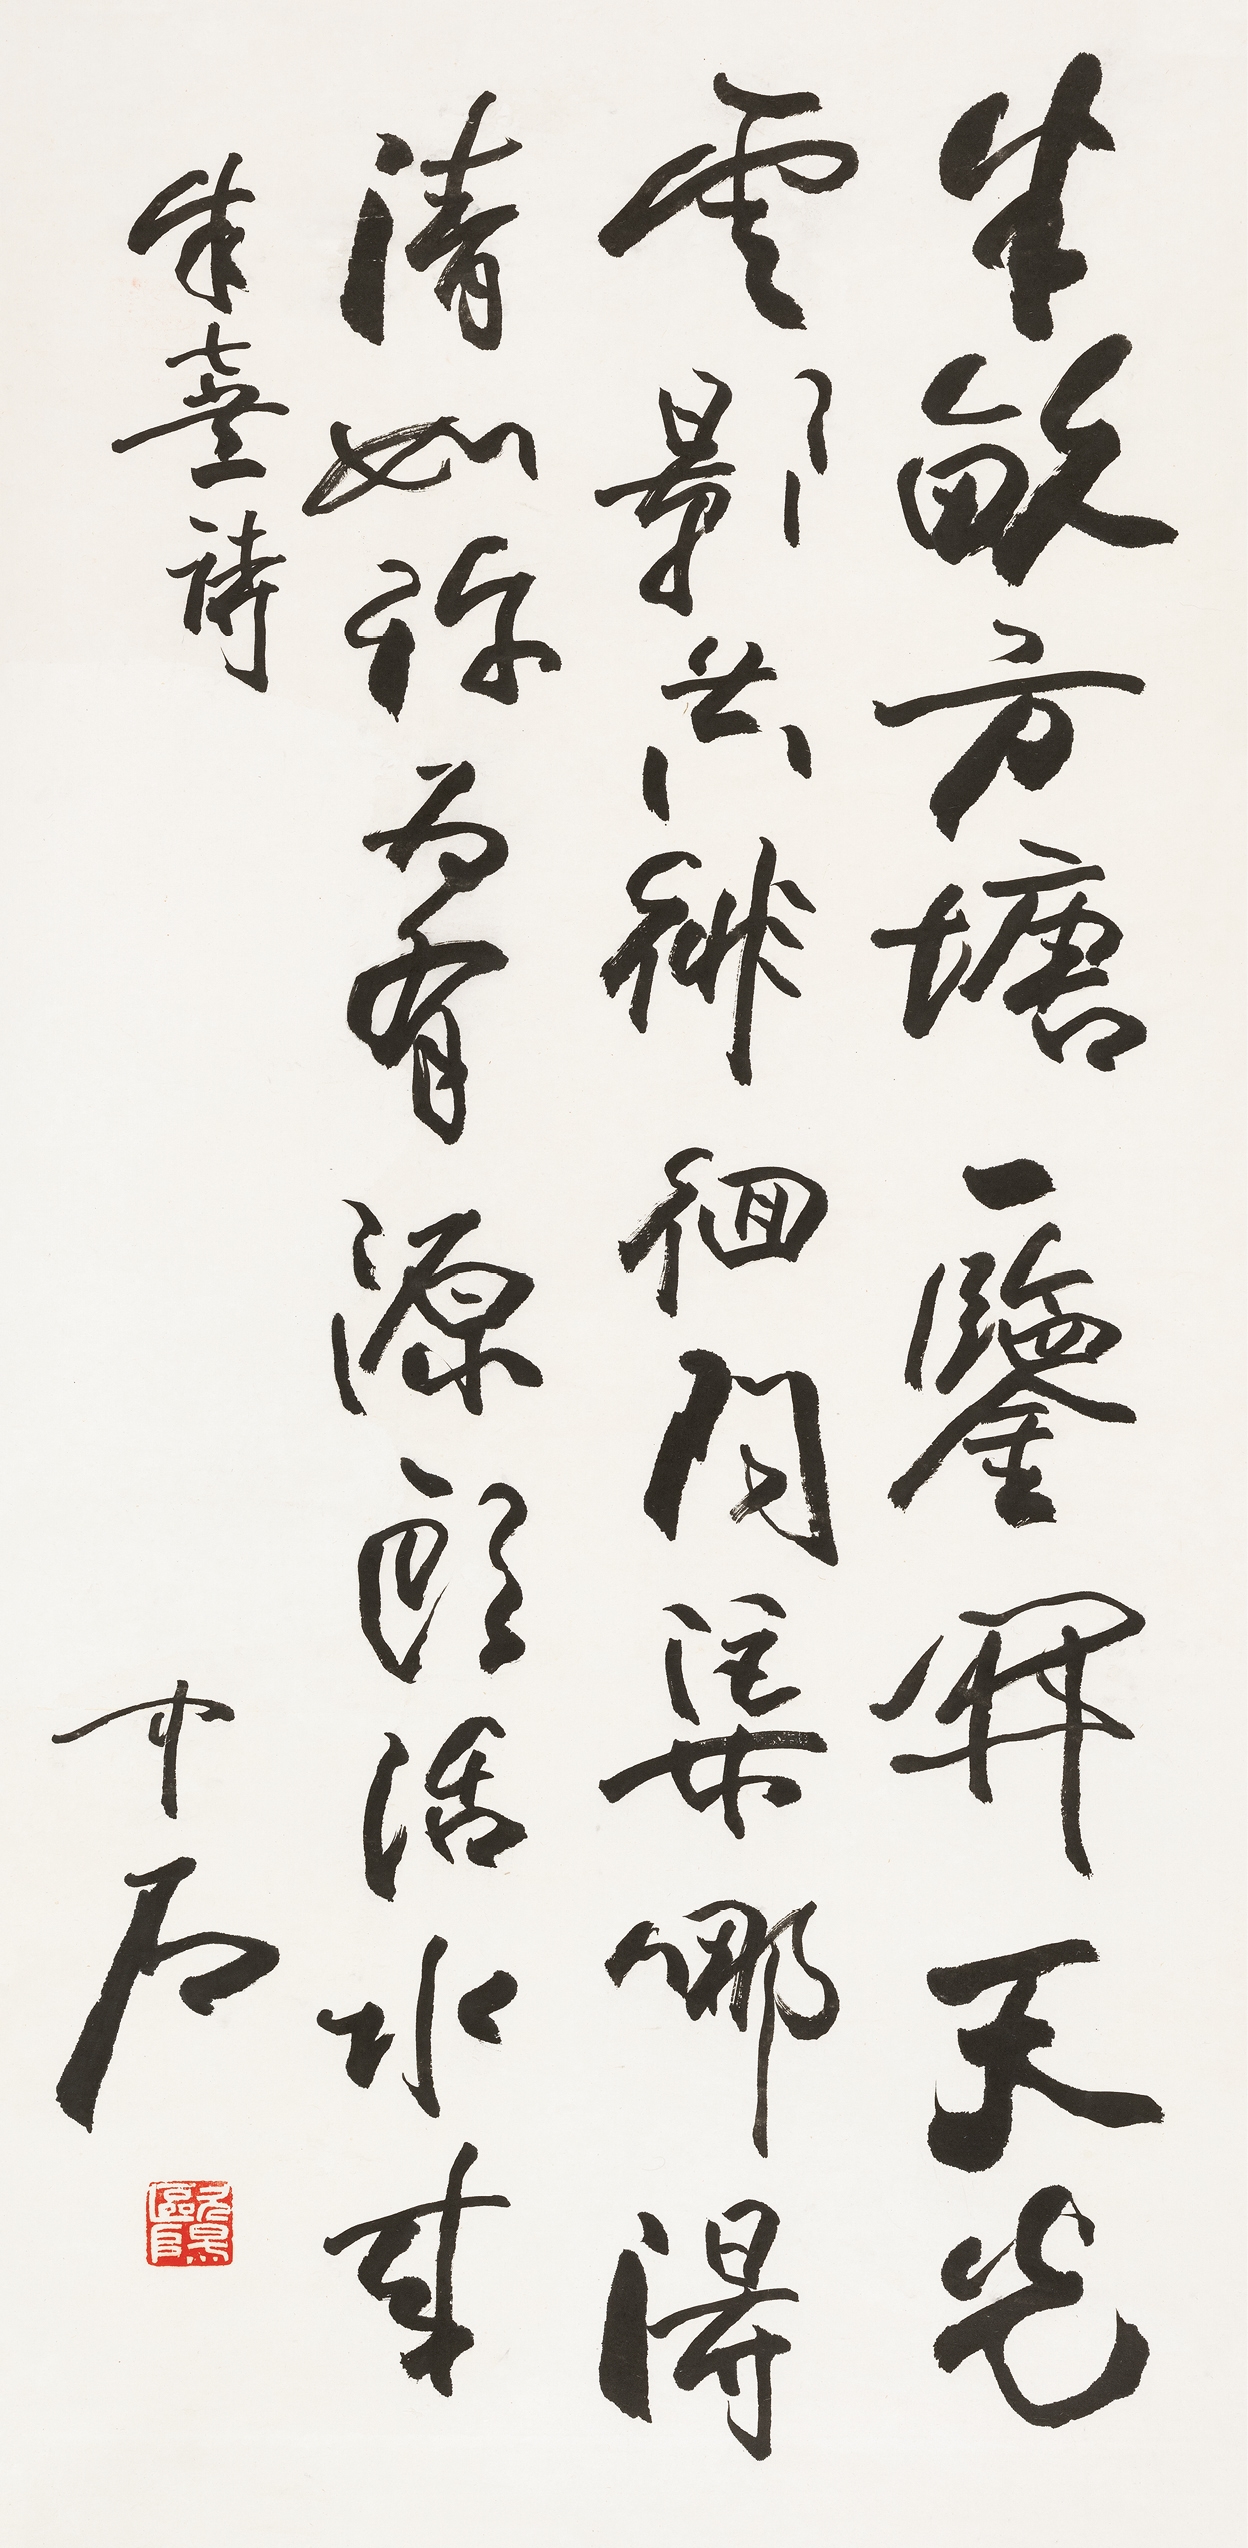 半畝方塘一鑒開天光
雲影共徘徊問渠哪得
清如許為有源頭活水來
朱熹詩
中石
歐陽